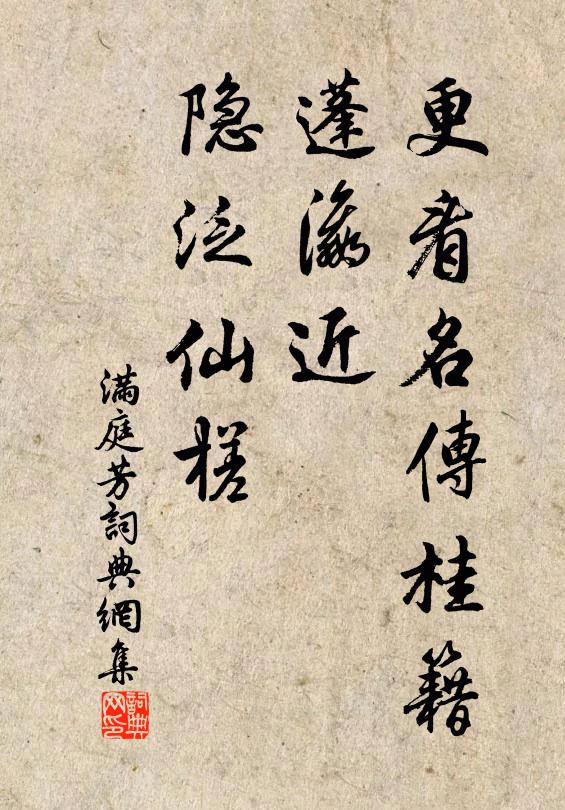 更看名傳桂籍
蓬瀛近
隐泛仙槎
滿庭芳詞典網集
詞典网印